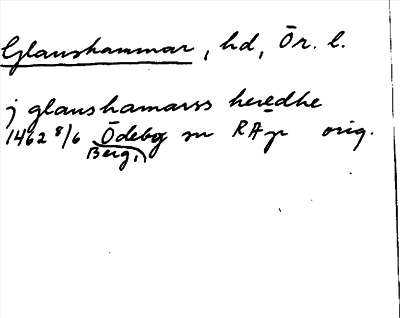 Glanshammar, hd, Ör. l.
j glanshamarss heredhe
1462 8/6 Ödebg sn RAp orig.
Berg,